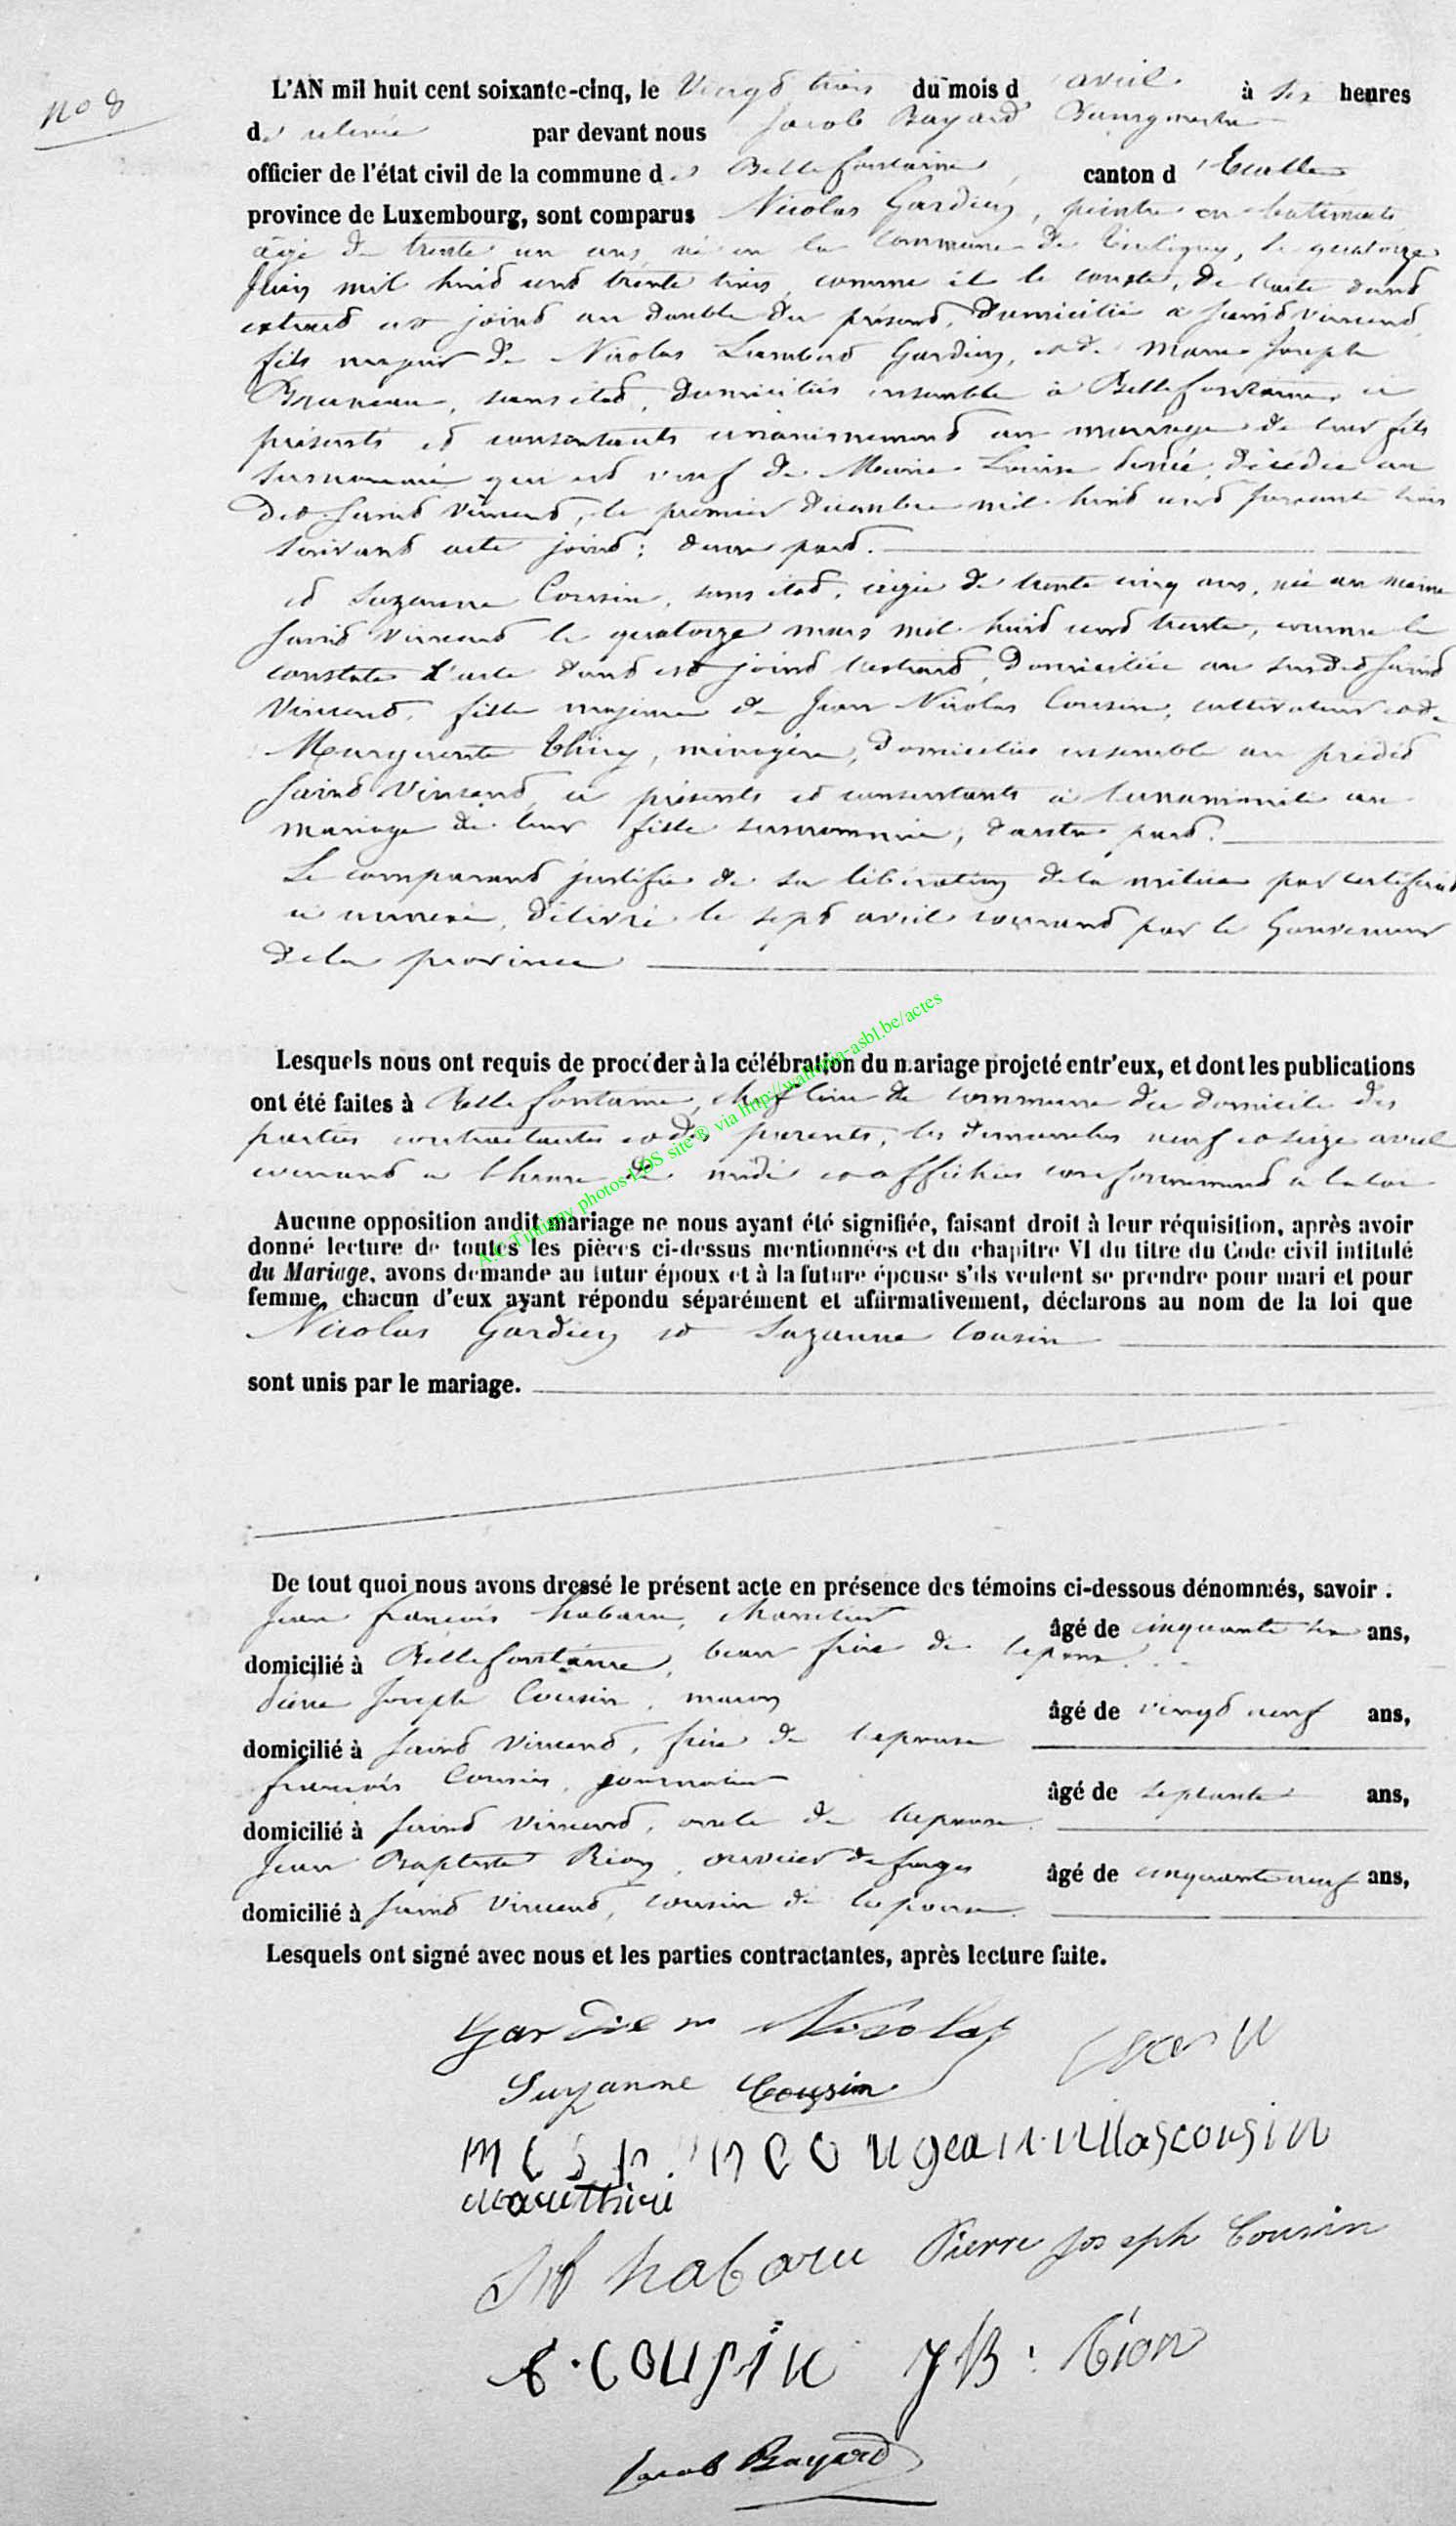 No 8
L'AN mil huit cent soixante-cinq, le vingt trois du mois d'avril à six heures
de relevée par devant nous Jacob Bayard Bourgmestre
officier de l'état civil de la commune de Bellefontaine, canton d'Etalle
province de Luxembourg, sont comparus Nicolas Gardien, peintre en batiments
âgé de trente un ans, né en la commune de Tintigny, le quatorze
Juin mil huit cent trente trois, comme il le conste, de l'acte dont
extrait est joint au double du présent, domicilié a Saint Vincent,
fils majeur de Nicolas Lambert Gardien, et de Marie Joseph
sans état, domiciliés ensemble à Bellefontaine, ci
présents et consentants unanimement au mariage de leur fils
surnommé qui est veuf de Marie Louise décédée au
dit Saint Vincent, le premier décembre mil huit cent soixante trois
suivant acte joint; d'une part.
et Suzanne Cousin, sans état, âgée de trente cinq ans, née au même
Saint Vincent le quatorze mars mil huit cent trente, comme le
constate l'acte dont est joint l'extrait, domiciliée au susdit Saint
Vincent, fille majeure de Jean Nicolas Cousin, cultivateur et de
Marguerite Thiry, ménagère, domiciliés ensemble au prédit
Saint Vincent ci présents et consentants à l'unanimité au
mariage de leur fille surnommée, d'autre part.
Le comparant justifie de sa libération de la milice par certificat
ci annexé, délivré le sept avril courant par le Gouverneur
de la province
Lesquels nous ont requis de procéder à la célébration du mariage projeté entr'eux, et dont les publications
ont été faites à Bellefontaine, chef lieu de commune du domicile des
parties contractantes et des parents, les dimanches neuf et seize avril
courant a l'heure de midi et affichées conformément a la loi
A.C Tintigny photos LDS site ® via http://wallonia-asbl.be/actes
Aucune opposition audit mariage ne nous ayant été signifiée, faisant droit à leur réquisition, après avoir
donné lecture de toutes les pièces ci-dessus mentionnées et du chapitre VI du titre du Code civil intitulé
du Mariage, avons demande au futur époux et à la future épouse s'ils veulent se prendre pour mari et pour
femme, chacun d'eux ayant répondu séparément et affirmativement, déclarons au nom de la loi que
Nicolas Gardien et Suzanne Cousin
sont unis par le mariage.
De tout quoi nous avons dressé le présent acte en présence des témoins ci-dessous dénommés, savoir :
Jean François habaru, âgé de cinquante six ans,
domicilié à Bellefontaine, beau frère de l'épouse.
Pierre Joseph Cousin, maçon âgé de vingt neuf ans,
domicilié à Saint Vincent, frère de l'épouse
François Cousin, journalier âgé de septante ans,
domicilié à Saint Vincent, oncle de l'épouse.
Jean Baptiste Rion, ouvrier de forges âgé de cinquante neuf ans,
domicilié à Saint Vincent, cousin de l'épouse.
Lesquels ont signé avec nous et les parties contractantes, après lecture faite.
Gardien Nicolas
Suzanne Cousin
jean nicolas cousin
habaru Pierre Joseph Cousin
COUSIN J B: Rion
Jacob Bayard